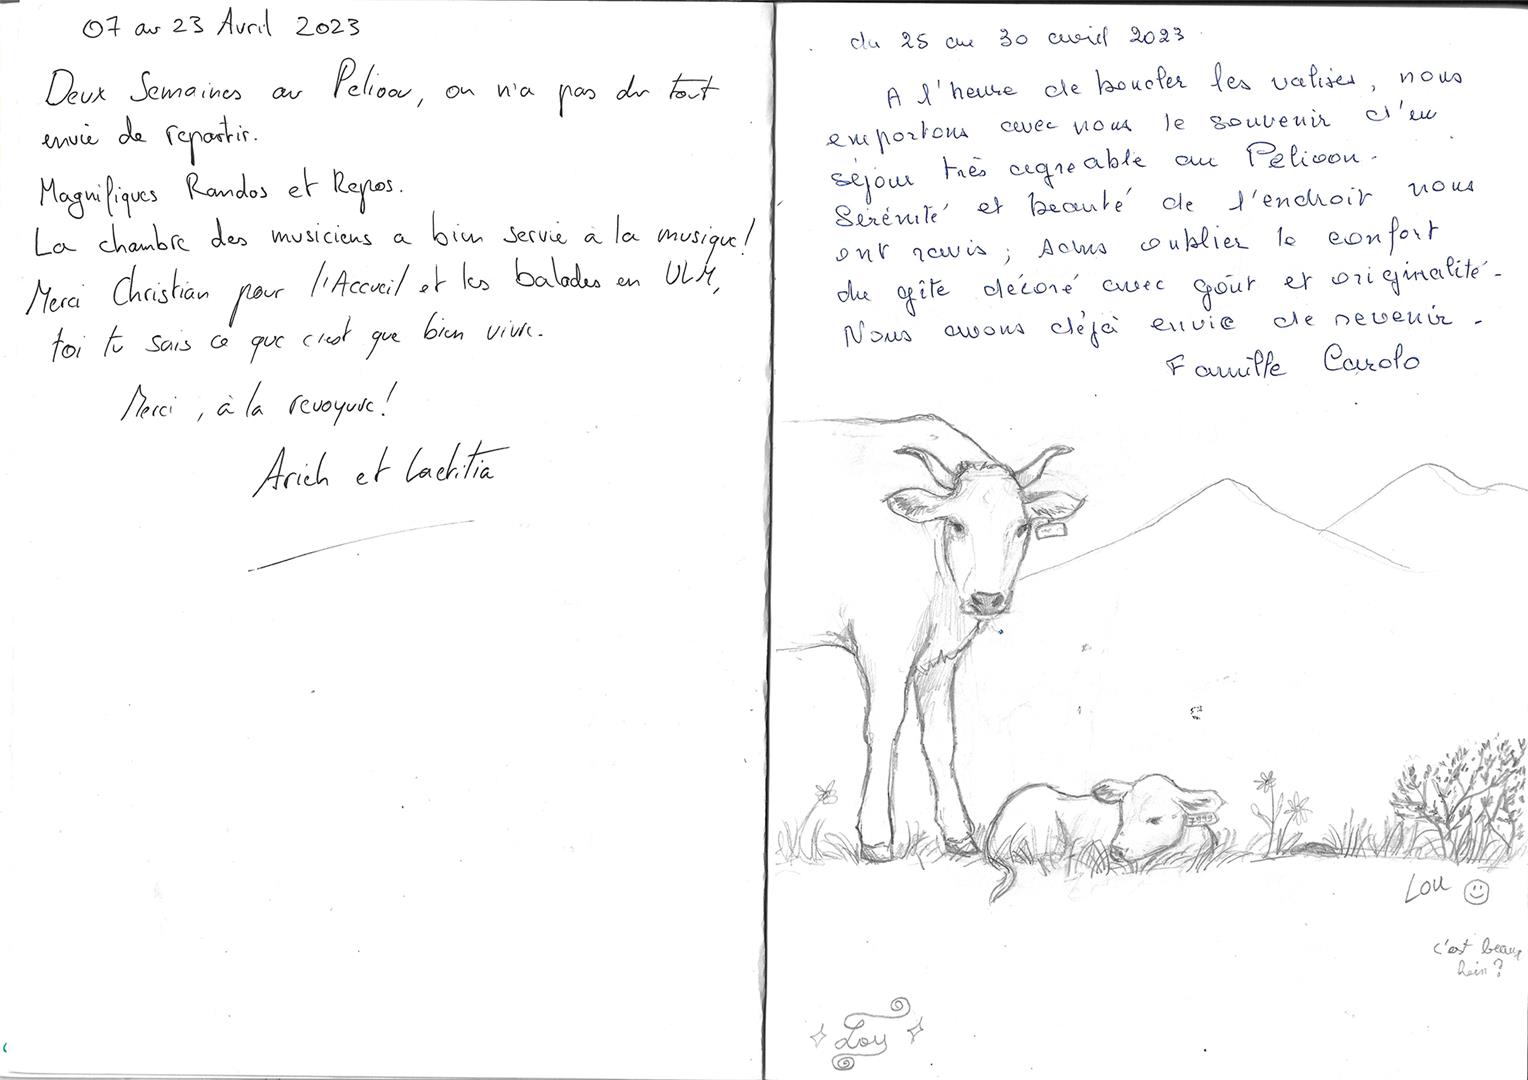 07 au 23 Avril 2023
Deux Semaines au Pelioou, on n'a pas du tout
envie de repartir.
Magnifiques Randos et Repos.
La chambre des musiciens a bien servie à la musique!
Merci Christian pour l'Accueil et les balades en ULM,
toi tu sais ce que c'est que bien vivre.
Merci, à la revoyure!
Arieh et Laetitia
du 25 au 30 avril 2023
A l'heure de boucler les valises, nous
emportons avec nous le souvenir d'un
séjour très agreable au Pelioou.
Sérénité et beauté de l'endroit nous
ont ravis ; sans oublier le confort
du gîte décoré avec goût et originalité.
Nous avons déjà envie de revenir.
Famille Carolo
7999
Lou
c'est beau
hein ?
Lou